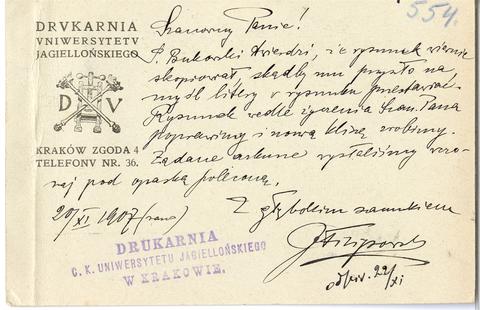 554.
DRVKARNIA
VNIWERSYTETV
JAGIELLOŃSKIEGO
D V
KRAKÓW ZGODA 4
TELEFONV NR. 36.
Szanowny Panie!
P. Bukowski twierdzi, że rysunek wiernie
skopiował, skądby mu przyszło na
myśl litery w rysunku przestawiać.
Rysunek wedle życzenia Szan. Pana
poprawimy i nową kliszę zrobimy.
Żądane arkusze wysłaliśmy wczo-
raj pod opaską poleconą.
20/XI 1907 (rano)
Z głębokim szacunkiem
DRUKARNIA
C. K. UNIWERSYTETU JAGIELLOŃSKIEGO
W KRAKOWIE.
22/XI